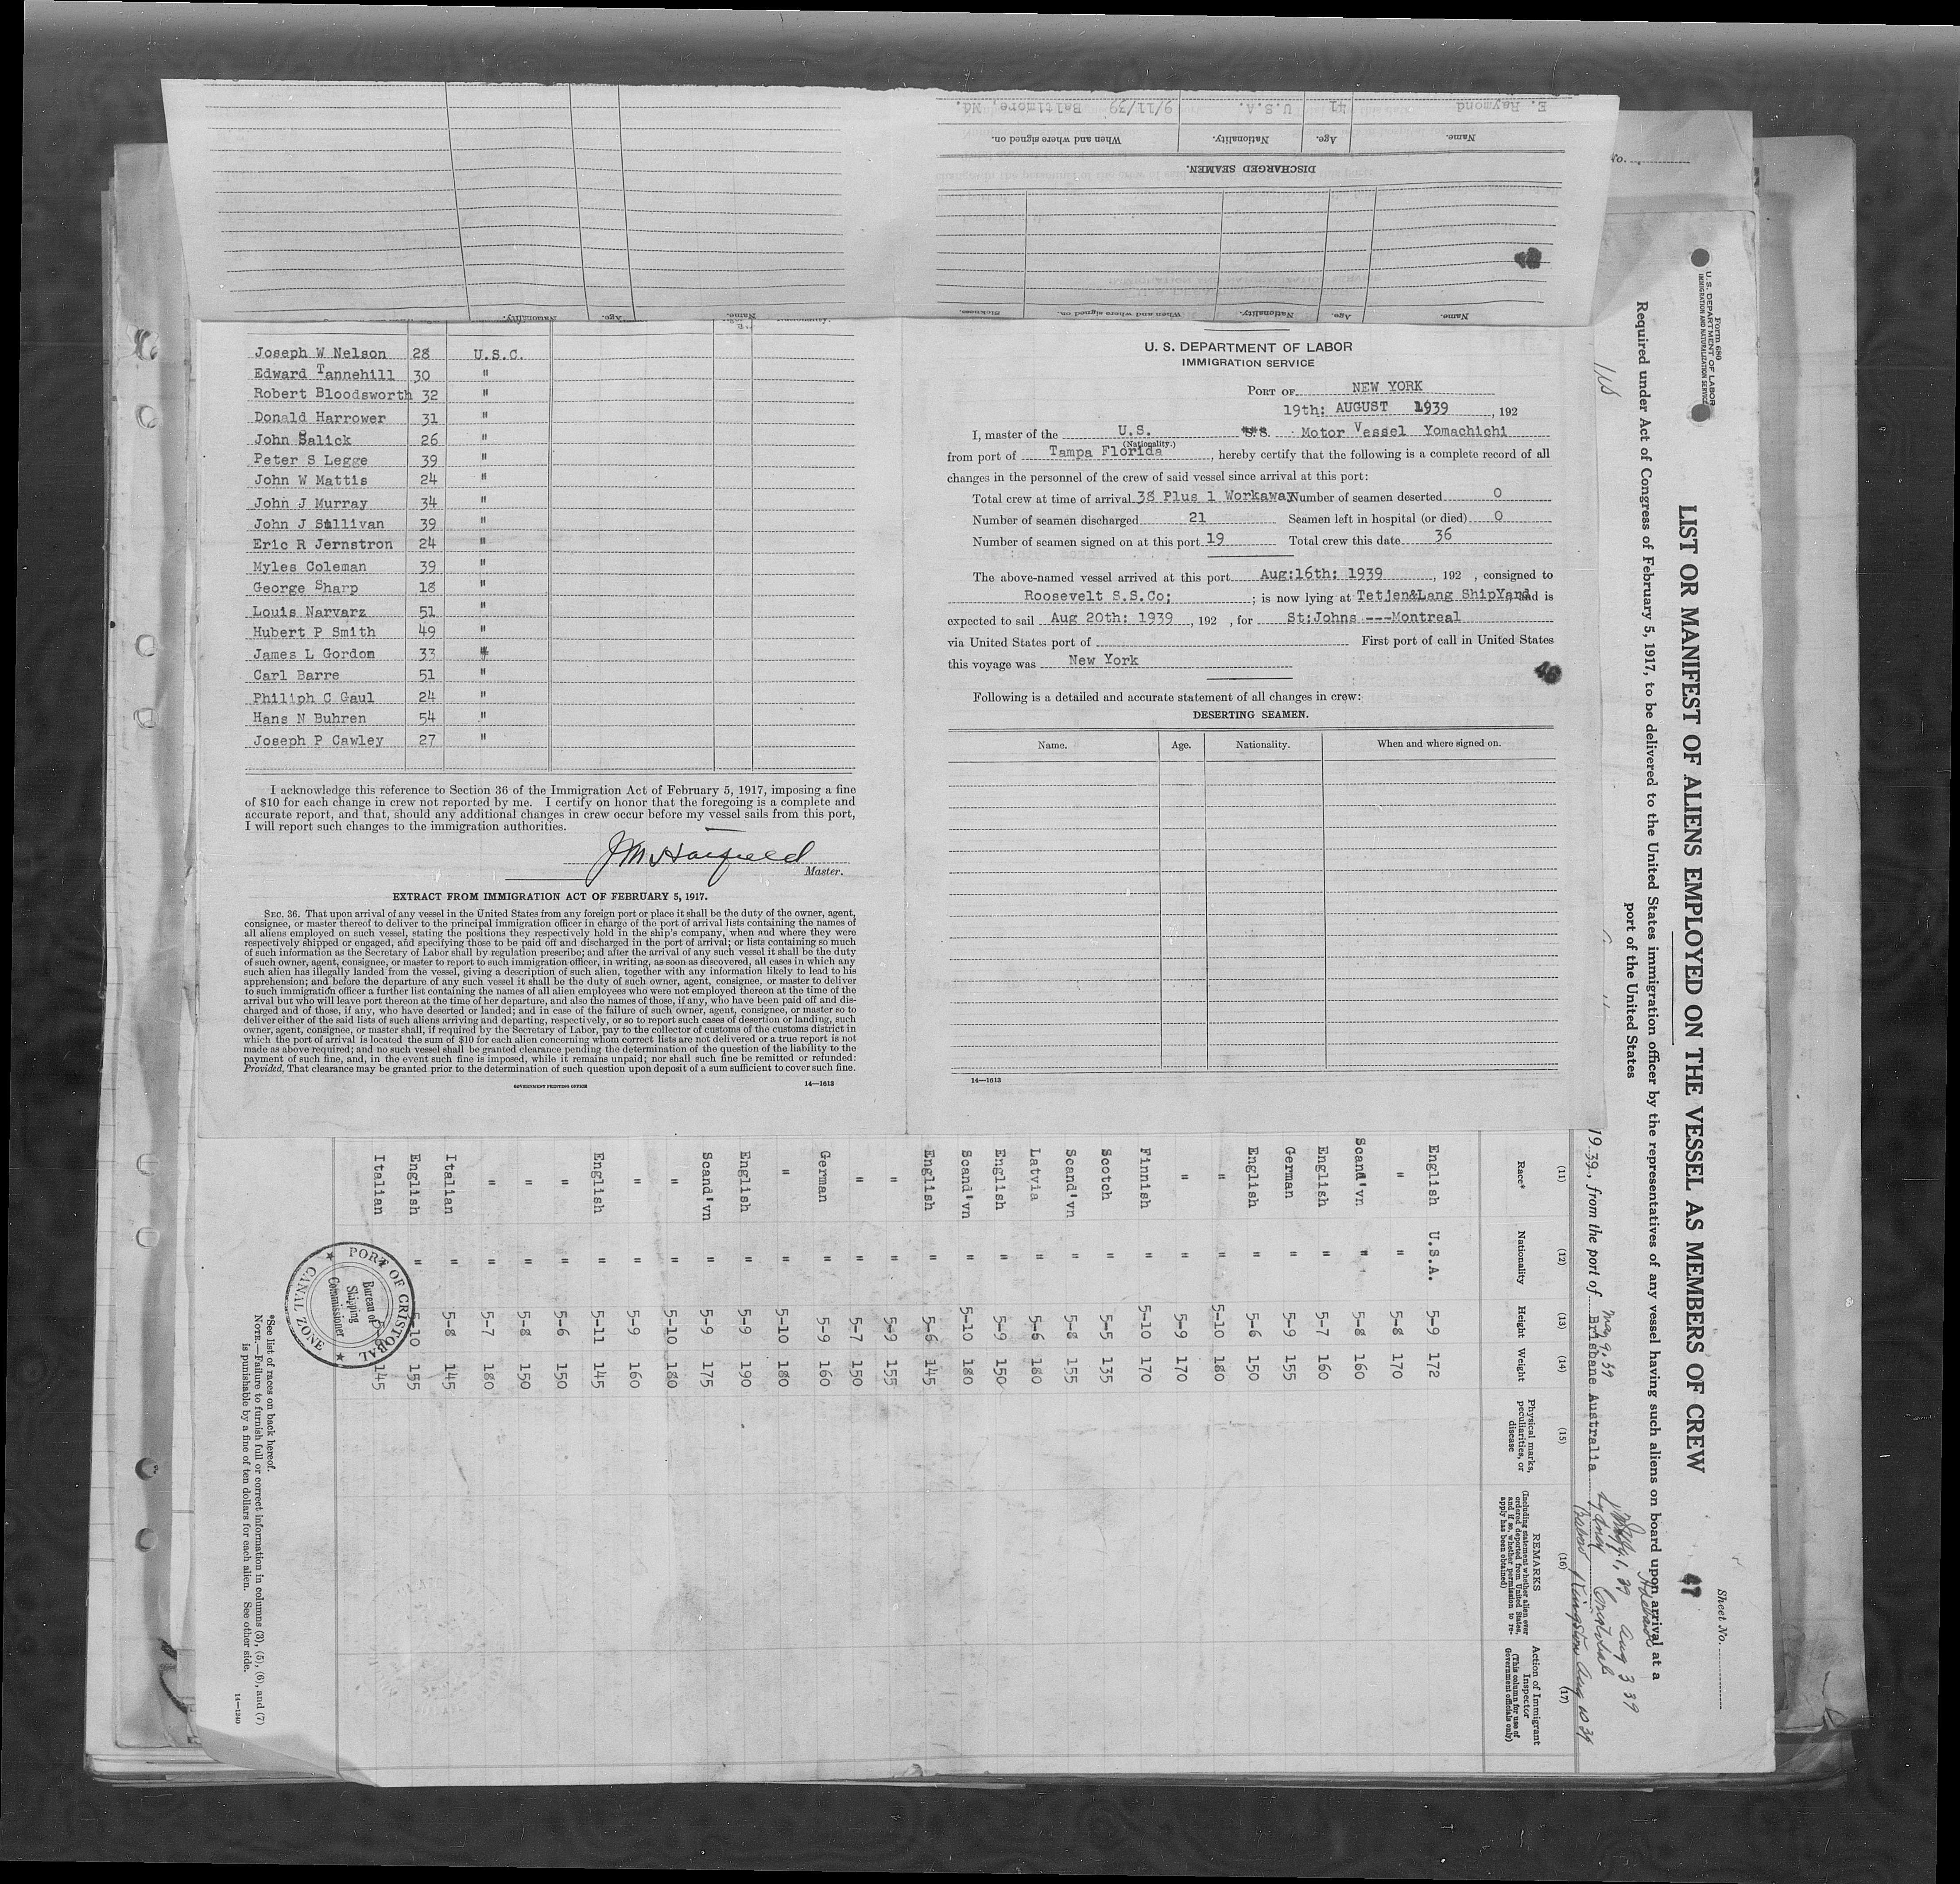 E. Raymond 41 U.S.A. 9/11/39 Baltimore, Md.
Name. Age. Nationality. When and where signed on.
DISCHARGED SEAMEN.
Name. Age. Nationality. When and where signed on. Sickness.
Name. Age. Nationality.
Joseph W Nelson 28 U.S.C.
Edward Tannehill 30 "
Robert Bloodsworth 32 "
Donald Harrower 31 "
John Salick 26 "
Peter S Legge 39 "
John W Mattis 24 "
John J Murray 34 "
John J Sullivan 39 "
Eric R Jernstron 24 "
Myles Coleman 39 "
George Sharp 18 "
Louis Narvarz 51 "
Hubert P Smith 49 "
James L Gordon 33 "
Carl Barre 51 "
Philiph C Gaul 24 "
Hans N Buhren 54 "
Joseph P Cawley 27 "
I acknowledge this reference to Section 36 of the Immigration Act of February 5, 1917, imposing a fine
of $10 for each change in crew not reported by me. I certify on honor that the foregoing is a complete and
accurate report, and that, should any additional changes in crew occur before my vessel sails from this port,
I will report such changes to the immigration authorities.
Master.
EXTRACT FROM IMMIGRATION ACT OF FEBRUARY 5, 1917.
SEC. 36. That upon arrival of any vessel in the United States from any foreign port or place it shall be the duty of the owner, agent,
consignee, or master thereof to deliver to the principal immigration officer in charge of the port of arrival lists containing the names of
all aliens employed on such vessel, stating the positions they respectively hold in the ship's company, when and where they were
respectively shipped or engaged, and specifying those to be paid off and discharged in the port of arrival; or lists containing so much
of such information as the Secretary of Labor shall by regulation prescribe; and after the arrival of any such vessel it shall be the duty
of such owner, agent, consignee, or master to report to such immigration officer, in writing, as soon as discovered, all cases in which any
such alien has illegally landed from the vessel, giving a description of such alien, together with any information likely to lead to his
apprehension; and before the departure of any such vessel it shall be the duty of such owner, agent, consignee, or master to deliver
to such immigration officer a further list containing the names of all alien employees who were not employed thereon at the time of the
arrival but who will leave port thereon at the time of her departure, and also the names of those, if any, who have been paid off and dis-
charged and of those, if any, who have deserted or landed; and in case of the failure of such owner, agent, consignee, or master so to
deliver either of the said lists of such aliens arriving and departing, respectively, or so to report such cases of desertion or landing, such
owner, agent, consignee, or master shall, if required by the Secretary of Labor, pay to the collector of customs of the customs district in
which the port of arrival is located the sum of $10 for each alien concerning whom correct lists are not delivered or a true report is not
made as above required; and no such vessel shall be granted clearance pending the determination of the question of the liability to the
payment of such fine, and, in the event such fine is imposed, while it remains unpaid; nor shall such fine be remitted or refunded:
Provided, That clearance may be granted prior to the determination of such question upon deposit of a sum sufficient to cover such fine.
GOVERNMENT PRINTING OFFICE 14—1613
U. S. DEPARTMENT OF LABOR
IMMIGRATION SERVICE
PORT OF NEW YORK
19th: AUGUST 1939, 192
I, master of the U.S. S.S. Motor Vessel Yomachichi
(Nationality.)
from port of Tampa Florida, hereby certify that the following is a complete record of all
changes in the personnel of the crew of said vessel since arrival at this port:
Total crew at time of arrival 38 Plus 1 Workaway Number of seamen deserted 0
Number of seamen discharged 21 Seamen left in hospital (or died) 0
Number of seamen signed on at this port 19 Total crew this date 36
The above-named vessel arrived at this port Aug:16th: 1939, 192 , consigned to
Roosevelt S.S.Co; ; is now lying at Tetjen&Lang ShipYard, and is
expected to sail Aug 20th: 1939, 192 , for St:Johns ---Montreal
via United States port of First port of call in United States
this voyage was New York
Following is a detailed and accurate statement of all changes in crew:
DESERTING SEAMEN.
Name. Age. Nationality. When and where signed on.
14—1613
Sheet No.
Form 689
U. S. DEPARTMENT OF LABOR
IMMIGRATION AND NATURALIZATION SERVICE
LIST OR MANIFEST OF ALIENS EMPLOYED ON THE VESSEL AS MEMBERS OF CREW
47
Required under Act of Congress of February 5, 1917, to be delivered to the United States immigration officer by the representatives of any vessel having such aliens on board upon arrival at a
port of the United States
1939, from the port of Brisbane Australia
May 9, 39
Aug 3 39
Kingston Aug 10 39
(11) (12) (13) (14) (15) (16) (17)
Race* Nationality Height Weight Physical marks, peculiarities, or disease
REMARKS
(Including statement whether alien ever ordered deported from United States, and if so, whether permission to re-apply has been obtained)
Action of Immigrant Inspector
(This column for use of Government officials only)
English U.S.A. 5-9 172
" " 5-8 170
Scand'vn " 5-8 160
English " 5-7 160
German " 5-9 155
English " 5-6 150
" " 5-10 180
" " 5-9 170
Finnish " 5-10 170
Scotch " 5-5 135
Scand'vn " 5-8 155
Latvia " 5-6 180
English " 5-9 150
Scand'vn " 5-10 180
English " 5-6 145
" " 5-9 155
" " 5-7 150
German " 5-9 160
" " 5-10 180
English " 5-9 190
Scand'vn " 5-9 175
" " 5-10 180
" " 5-9 160
English " 5-11 145
" " 5-6 150
" " 5-8 150
" " 5-7 180
Italian " 5-8 145
English " 5-10 155
Italian 145
PORT OF CRISTOBAL
CANAL ZONE
Bureau of
Shipping
Commissioner
*See list of races on back hereof.
NOTE.—Failure to furnish full or correct information in columns (3), (5), (6), and (7)
is punishable by a fine of ten dollars for each alien. See other side.
14—1240